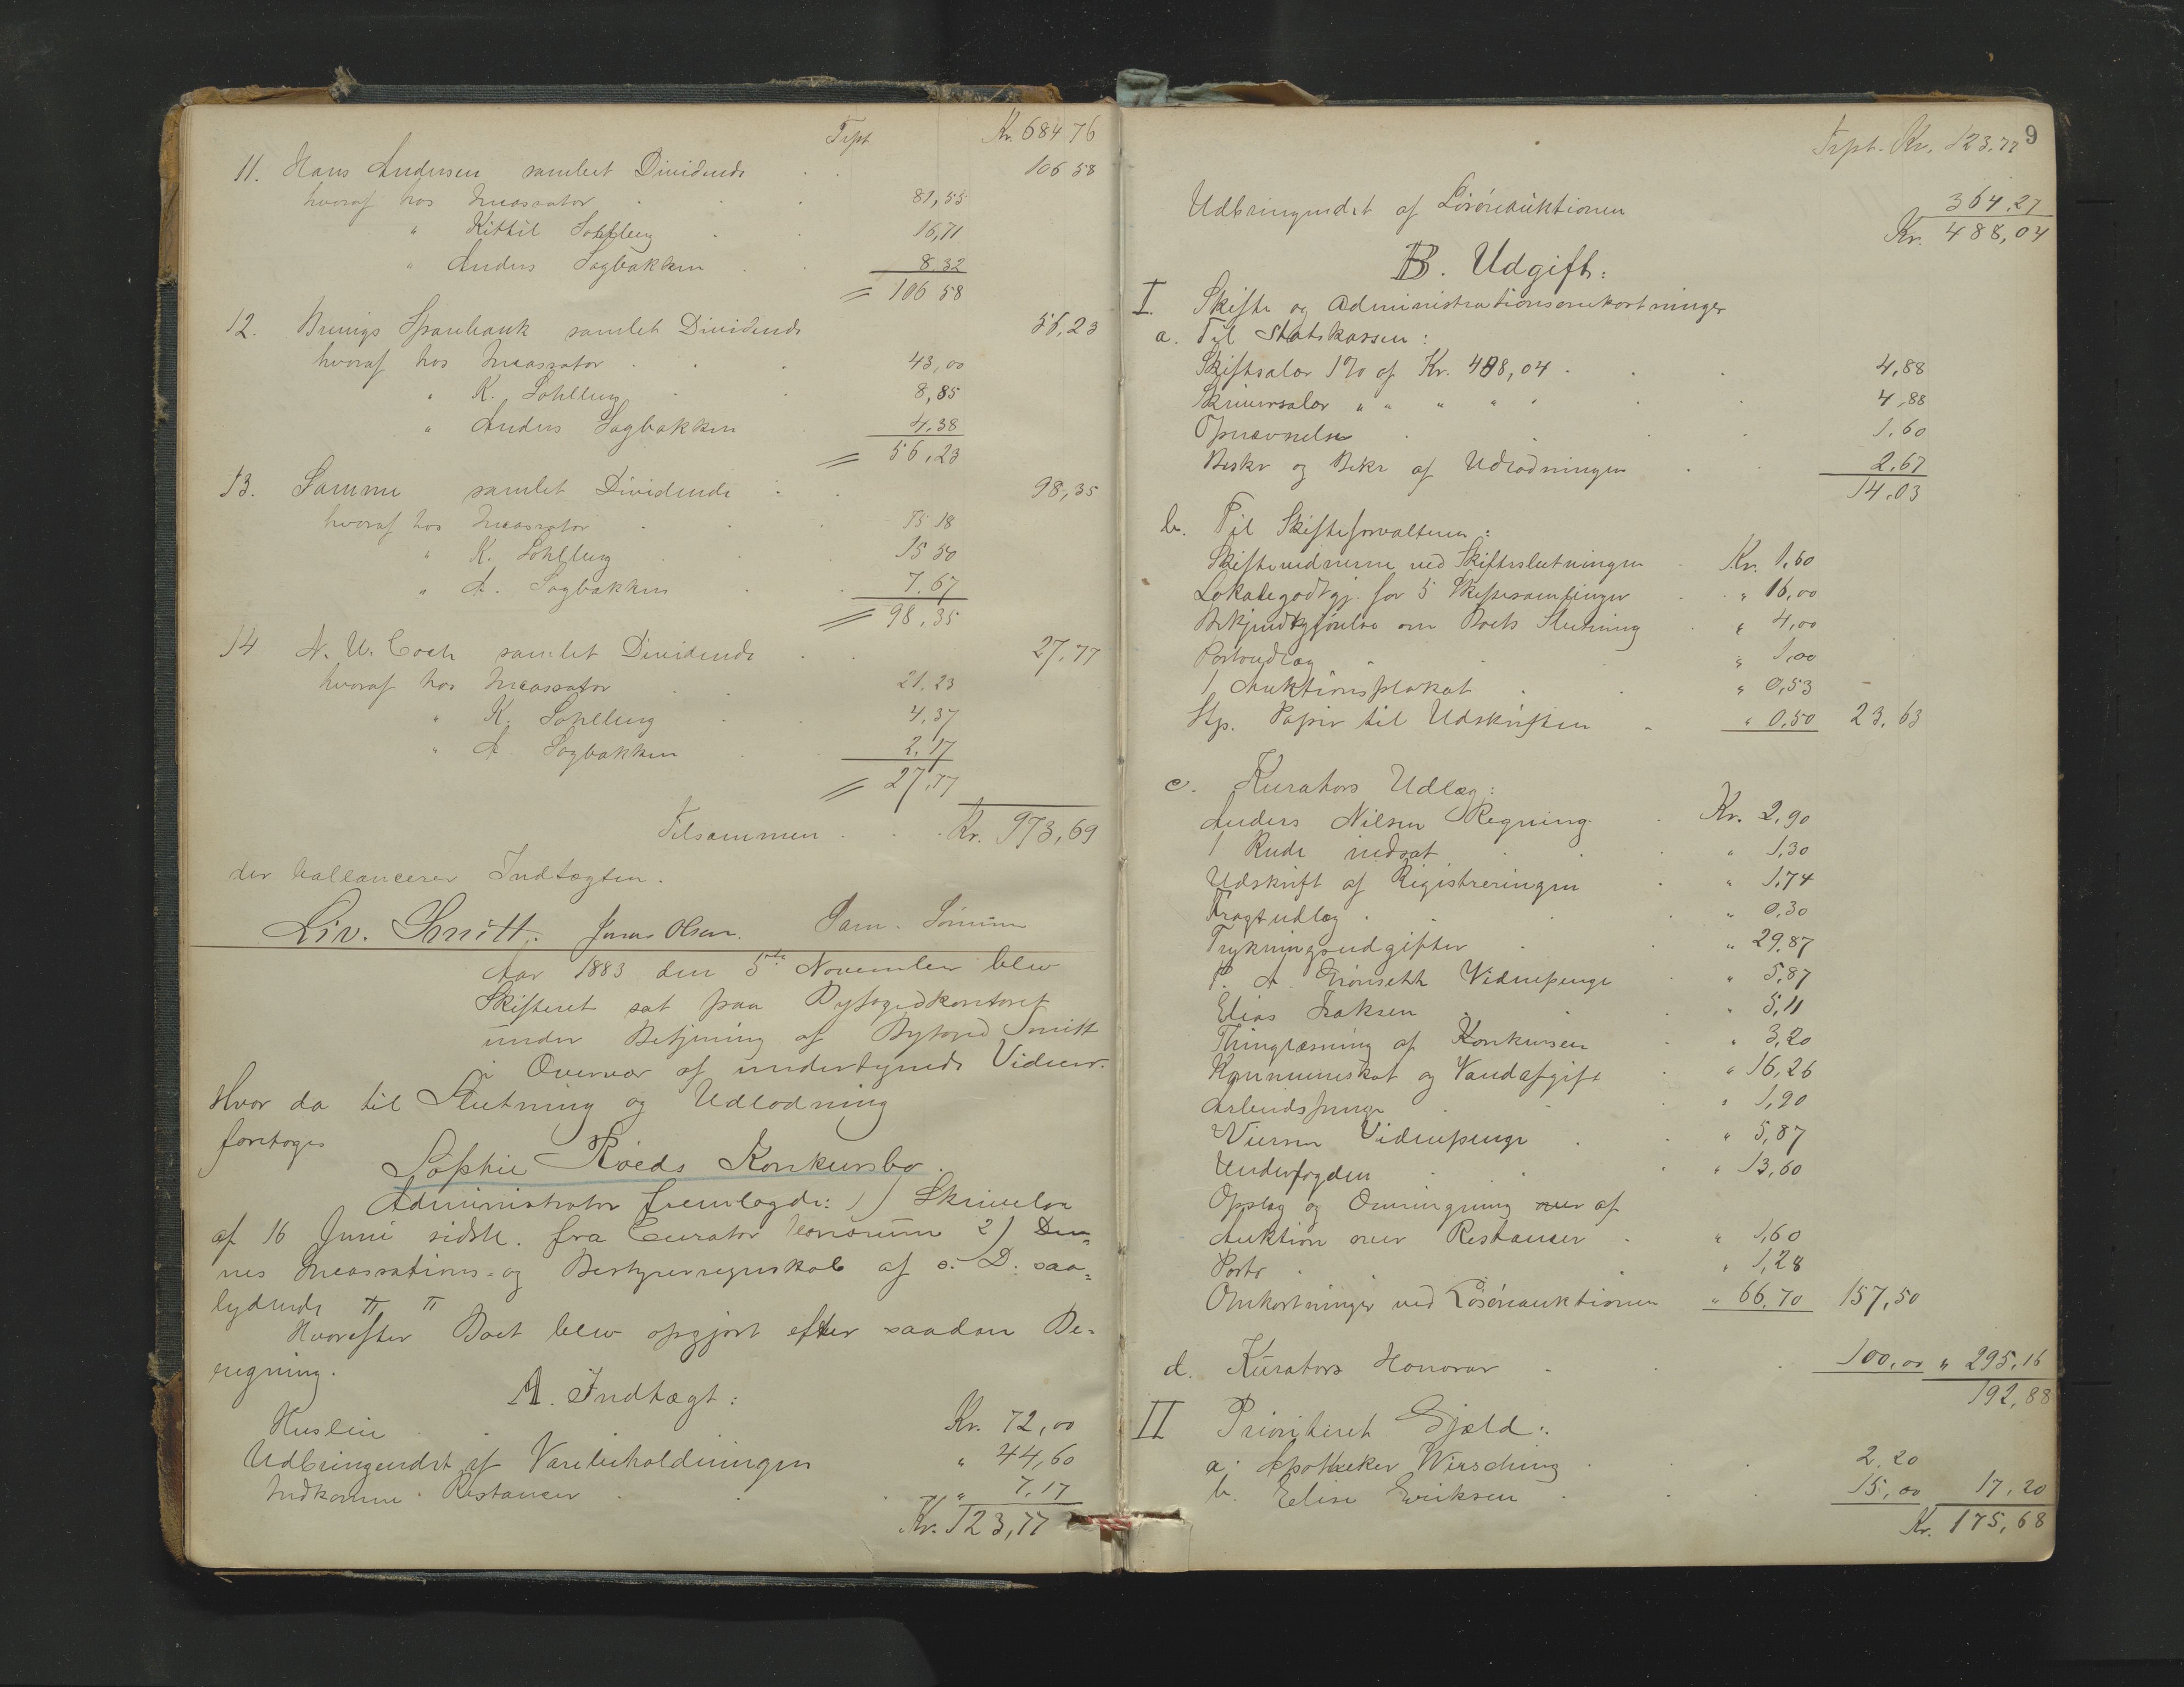 Trpt Kr. 684 76
11. Hans Andersen samlet Dividende . . 106 58
hvoraf hos Incassator . . . 81,55
" Kittil Sohlberg . . 16,71
" Anders Sagbakken . . 8.32
= 106 58
12. Brunigs Sparebank samlet Dividende 56,23
hvoraf hos Incassator . . . 43,00
" K. Sohlberg . . 8,85
" Anders Sagbakken 4.38
= 56,23
13. Samme samlet Dividende . . 98,35
hvoraf hos Incassator . . . 75 18
" K. Sohlberg . . 15 50
" A. Sagbakken . . 7.67
= 98,35
14 N. U. Coch samlet Dividende . . 27,77
hvoraf hos Incassator . . 21.23
" K. Sohlberg . . 4,37
" A. Sagbakken . 2.17
= 27,77
Tilsammen . . . Kr. 973,69
der ballancerer Indtægten.
Liv. Smitt. Jonas Olsen. Sam. Sörum
Aar 1883 den 5te November blev
Skifteret sat paa Byfogedkontoret
under Betjening af Byfoged Smitt
i Overvær af undertegnede Vidner.
Hvor da til Slutning og Udlodning
foretoges
Sophie Röeds Konkursbo.
Administrator fremlagde: 1) Skrivelse
af 16 Juni sidstl. fra Curator bonorum 2) Den=
nes Incassations= og Bestyrerregnskab af s. D. saa=
lydende π π
Hvorefter Boet blev opgjort efter saadan Be=
regning.
A. Indtægt:
Husleie . . Kr. 72,00
Udbringendet af Varebeholdningen " 44,60
Indkomne Restancer . . . " 7.17
Kr. 123,77
9
Trpt. Kr. 123.77
Udbringendet af Lösöreauktionen 364.27
Kr. 488,04
B. Udgift:
I. Skifte og Administrationsomkostninger
a. Til Statskassen:
Skiftesalær 1% af Kr. 488,04 . . . 4,88
Skriversalær " " " " " . . 4,88
Opnævnelse . . . 1.60
Beskr og Bekr af Udlodningen . . 2.67
14.03
b. Til Skifteforvalteren:
Skiftevidnerne ved Skifteslutningen Kr. 1,60
Lokalegodtgj. for 5 Skiftesamlinger . " 16,00
Bekjendtgjörelse om Boets Slutning . " 4,00
Portoudlæg . . " 1,00
1 Auktionsplakat . . " 0,53
Stp. Papir til Udskriften . " 0,50 23,63
c. Kurators Udlæg:
Anders Nilsen Regning . Kr. 2,90
1 Rude indsat . . . " 1,30
Udskrift af Registreringen . " 1,74
Fragtudlæg . . . . " 0.30
Trykningsudgifter . . " 29.87
P. A. Grönseth Vidnepenge " 5,87
Elias Isaksen . . " 5,11
Thinglæsning af Konkursen . " 3,20
Kommuneskat og Vandafgift . " 16,26
Arbeidspenge . . . " 1,90
Viersen Vidnepenge . . " 5,87
Underfogden . . " 13,60
Opslag og Omringning over af
Auktion over Restancer . " 1,60
Porto . . . " 1,28
Omkostninger ved Lösöreauktionen " 66,70 157,50
d. Kurators Honorar . . . 100,00 " 295,16
192,88
II Prioriteret Gjæld:
a. Apotheker Wersching . . . 2.20
b. Elise Eriksen . . . 15,00 17,20
Kr. 175,68